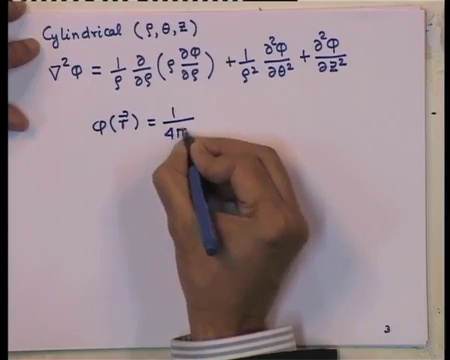 Cylindrical (ρ, θ, z)
∇²φ = 1/ρ ∂/∂ρ (ρ ∂φ/∂ρ) + 1/ρ² ∂²φ/∂θ² + ∂²φ/∂z²
φ(r⃗) = 1/4π
3